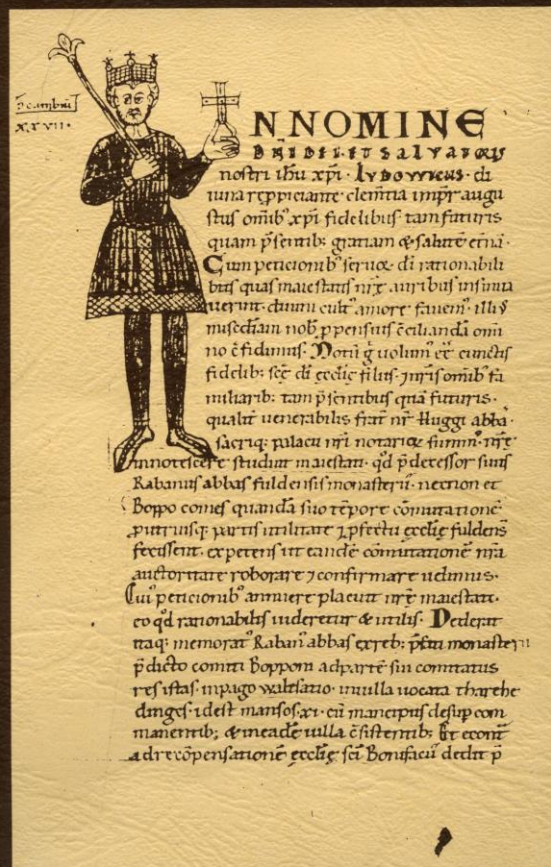 Decembrium
XXVII.
N NOMINE
DNI DEI. ET SALVATORIS
nostri ihu xpi. LVDOWICUS. di
uina respiciente clementia impr augu
stus omib; xpi fidelibus tam futuris
quam psentib; gratiam & salute etna.
Cum peticionib; seruorum di rationabili
bus quas maiestatis nre auribus insinua
uerint. diuini cult' amore fauem'. illi'
misediam nob ppensius cciliandā omi
no cfidimus. Notū g uolum' ee cunctis
fidelib; sce di ecclie filiis. 7 nris omib' fa
miliarib; tam psentibus quā futuris.
qualit uenerabilis frat nr Huggi abba.
sacriq; palacii nri notarioꝝ summ' nre
innotescere studuit maiestati. qd pdecessor suus
Rabanus abbas fuldensis monasterii. necnon et
Boppo comes quandā suo tēpore cōmutationē
p utriusq; partis utilitate 7 pfectu ecclie fuldens
fecissent. expetens ut eandē cōmutationē nra
auctoritate roborare 7 confirmare uelimus.
Cui' peticionib' annuere placuit nre maiestati.
eo qd rationabilis uideretur & utilis. Dederat
itaq; memorat' Raban' abbas ex reb; pfati monasterii
pdicto comiti Bopponi ad partē sui comitatus
res istas. in pago waltsatio. in uilla uocata tharehe
dinges. id est mansos. xi. cū mancipiis desup com
manentib; & in eadē uilla csistentib; Et econt
ad recōpensationē ecclie sci Bonifacii dedit p